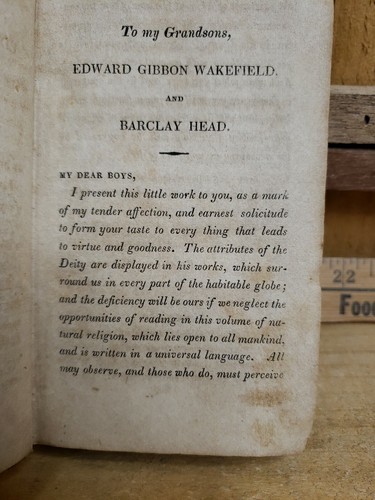 To my Grandsons,
EDWARD GIBBON WAKEFIELD.
AND
BARCLAY HEAD.
MY DEAR BOYS,
I present this little work to you, as a mark
of my tender affection, and earnest solicitude
to form your taste to every thing that leads
to virtue and goodness. The attributes of the
Deity are displayed in his works, which sur-
round us in every part of the habitable globe;
and the deficiency will be ours if we neglect the
opportunities of reading in this volume of na-
tural religion, which lies open to all mankind,
and is written in a universal language. All
may observe, and those who do, must perceive
22